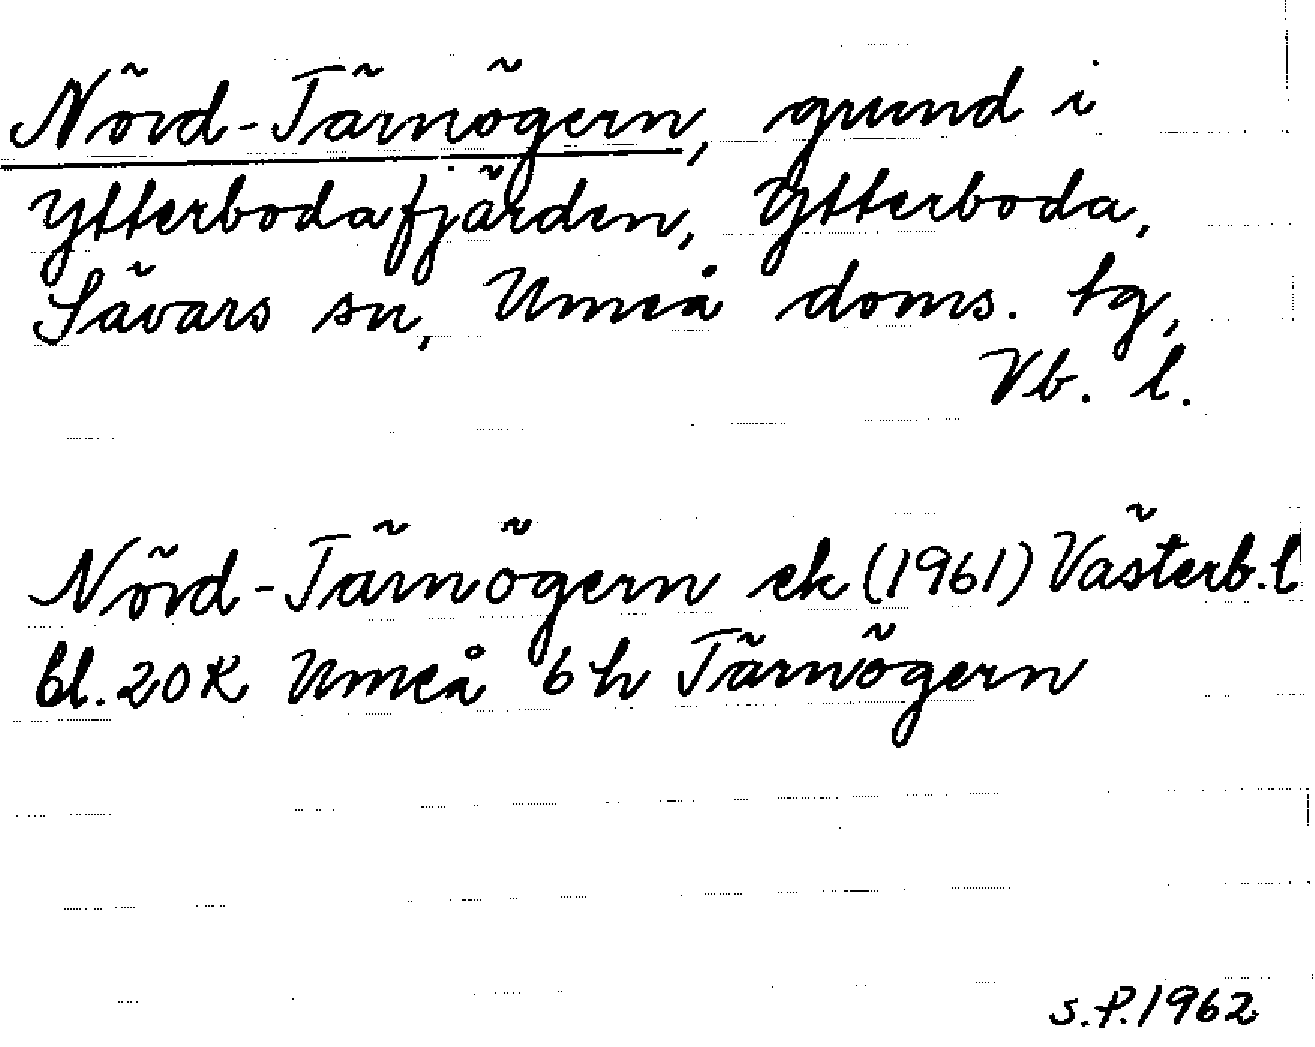 Nörd-Tärnögern, grund i
Ytterbodafjärden, Ytterboda,
Sävars sn, Umeå doms. tg,
Vb. l.
Nörd-Tärnögern ek (1961) Västerb. l
bl. 20K Umeå 6h Tärnögern
S.P. 1962